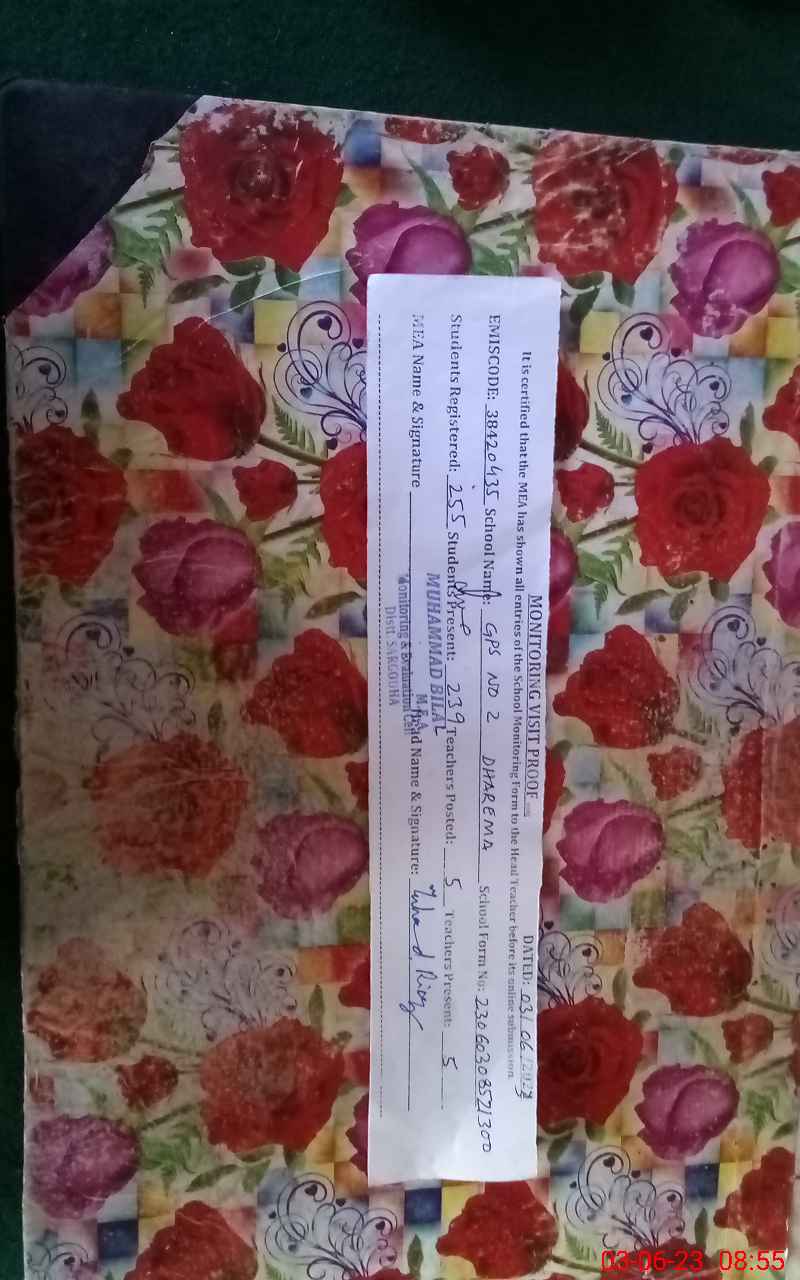 MONITORING VISIT PROOF DATED: 03/06/2023
It is certified that the MEA has shown all entries of the School Monitoring Form to the Head Teacher before its online submission.
EMISCODE: 38420435 School Name: GPS NO 2 DHAREMA School Form No: 23060308521300
Students Registered: 255 Students Present: 239 Teachers Posted: 5 Teachers Present: 5
MEA Name & Signature Head Name & Signature:
MUHAMMAD BILAL
M.E.A
Monitoring & Evaluation Cell
Distt. SARGODHA
03-06-23 08:55